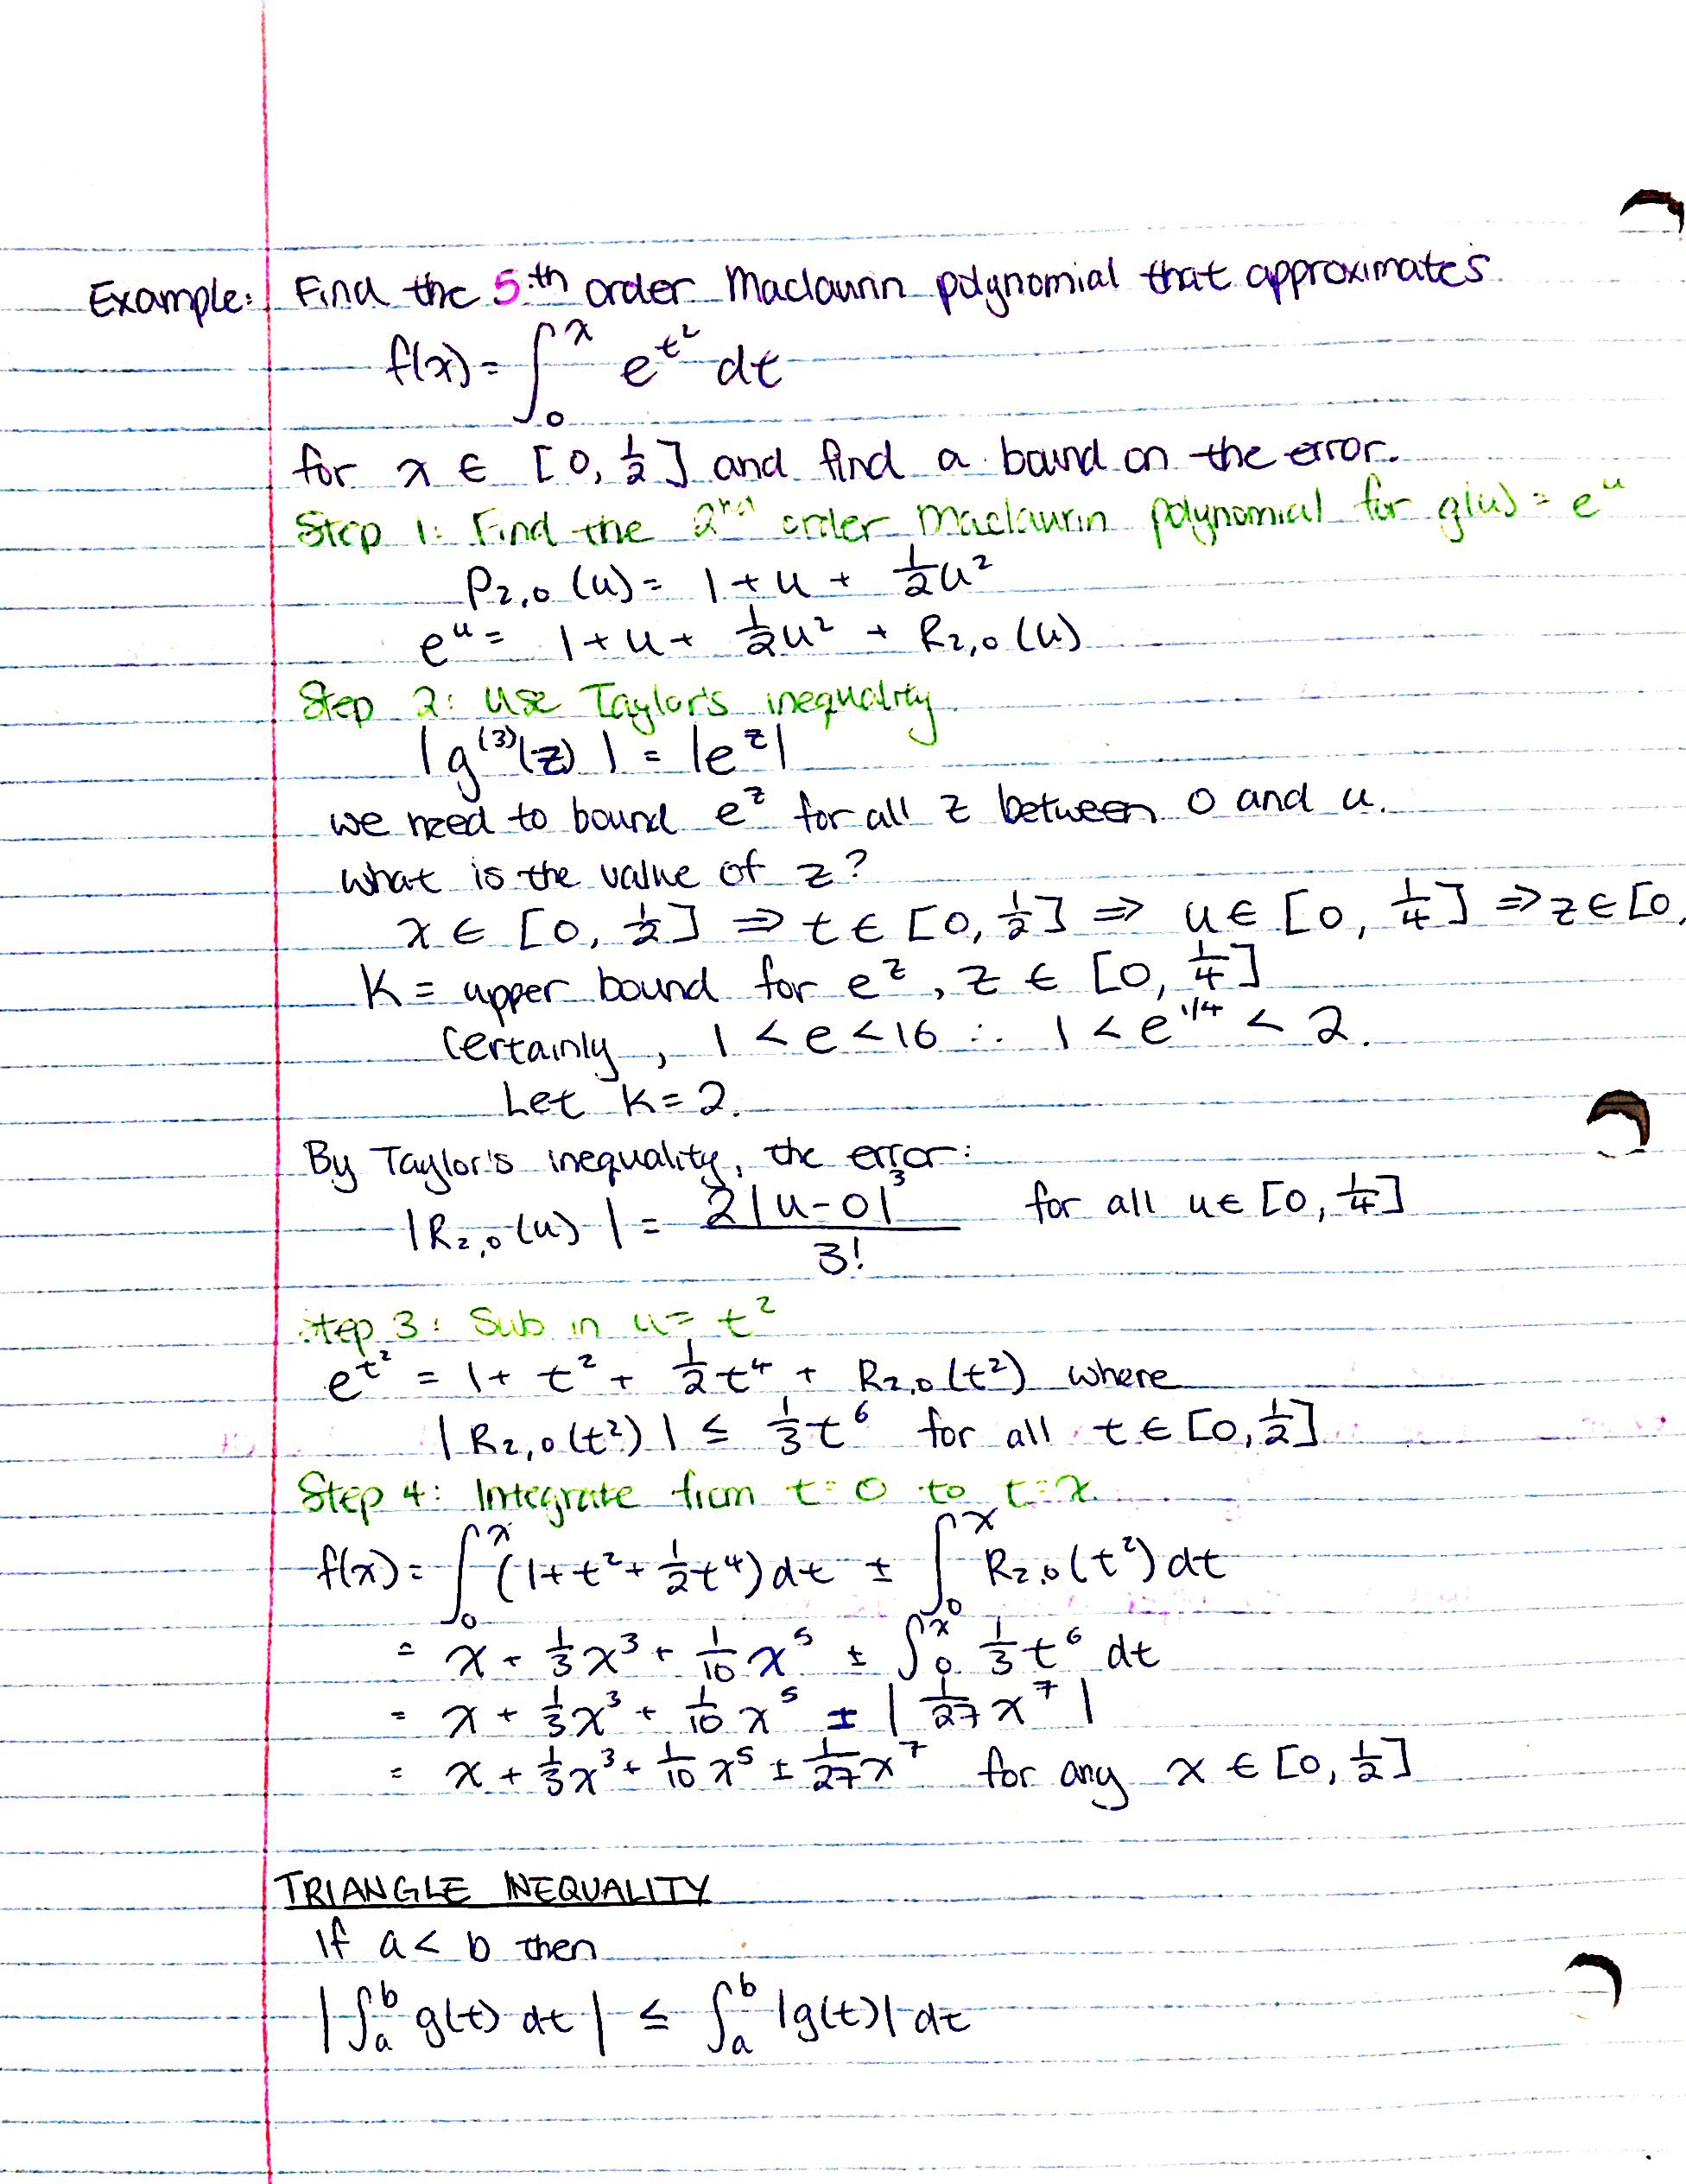 Example: Find the 5th order Maclaurin polynomial that approximates
f(x) = ∫₀ˣ e^(t²) dt
for x ∈ [0, 1/2] and find a bound on the error.
Step 1: Find the 2nd order Maclaurin polynomial for g(u) = e^u
P₂,₀(u) = 1 + u + 1/2 u²
e^u = 1 + u + 1/2 u² + R₂,₀(u)
Step 2: Use Taylor's inequality
|g⁽³⁾(z)| = |e^z|
we need to bound e^z for all z between 0 and u.
what is the value of z?
x ∈ [0, 1/2] ⇒ t ∈ [0, 1/2] ⇒ u ∈ [0, 1/4] ⇒ z ∈ [0,
K = upper bound for e^z, z ∈ [0, 1/4]
Certainly, 1 < e < 16 ∴ 1 < e^(1/4) < 2.
Let K = 2.
By Taylor's inequality, the error:
|R₂,₀(u)| = 2|u-0|³ / 3! for all u ∈ [0, 1/4]
Step 3: Sub in u = t²
e^(t²) = 1 + t² + 1/2 t⁴ + R₂,₀(t²) where
|R₂,₀(t²)| ≤ 1/3 t⁶ for all t ∈ [0, 1/2]
Step 4: Integrate from t = 0 to t = x.
f(x) = ∫₀ˣ (1 + t² + 1/2 t⁴) dt ± ∫₀ˣ R₂,₀(t²) dt
= x + 1/3 x³ + 1/10 x⁵ ± ∫₀ˣ 1/3 t⁶ dt
= x + 1/3 x³ + 1/10 x⁵ ± |1/27 x⁷|
= x + 1/3 x³ + 1/10 x⁵ ± 1/27 x⁷ for any x ∈ [0, 1/2]
TRIANGLE INEQUALITY
If a < b then
|∫ₐᵇ g(t) dt| ≤ ∫ₐᵇ |g(t)| dt